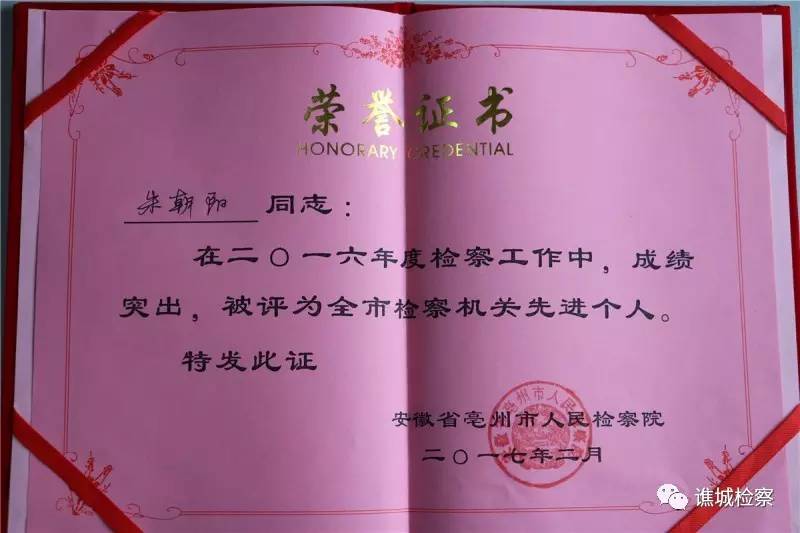 荣誉证书
HONORARY CREDENTIAL
朱朝阳 同志：
在二〇一六年度检察工作中，成绩
突出，被评为全市检察机关先进个人。
特发此证
安徽省亳州市人民检察院
二〇一七年二月
谯城检察